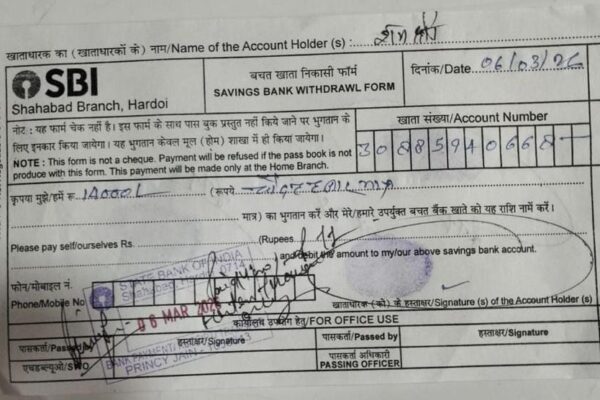 खाताधारक का (खाताधारकों के) नाम/Name of the Account Holder (s) :
SBI
Shahabad Branch, Hardoi
बचत खाता निकासी फॉर्म
SAVINGS BANK WITHDRAWL FORM
दिनांक/Date 06/03/26
नोट : यह फार्म चेक नहीं है। इस फार्म के साथ पास बुक प्रस्तुत नहीं किये जाने पर भुगतान के
लिए इनकार किया जायेगा। यह भुगतान केवल मूल (होम) शाखा में ही किया जायेगा।
NOTE : This form is not a cheque. Payment will be refused if the pass book is not
produced with this form. This payment will be made only at the Home Branch.
खाता संख्या/Account Number
कृपया मुझे/हमें रू (रूपये
मात्र) का भुगतान करें और मेरे/हमारे उपर्युक्त बचत बैंक खाते को यह राशि नामें करें।
Please pay self/ourselves Rs. (Rupees
and debit the amount to my/our above savings bank account.
फोन/मोबाइल नं.
Phone/Mobile No
STATE BANK OF INDIA
06 MAR
खाताधारक (कों) के हस्ताक्षर/Signature (s) of the Account Holder (s)
कार्यालय उपयोग हेतु/FOR OFFICE USE
पासकर्ता/Passed हस्ताक्षर/Signature
पासकर्ता/Passed by हस्ताक्षर/Signature
एचडब्ल्यूओ/SWO
BANK PAYMENT
PRINCY JAIN
पासकर्ता अधिकारी
PASSING OFFICER